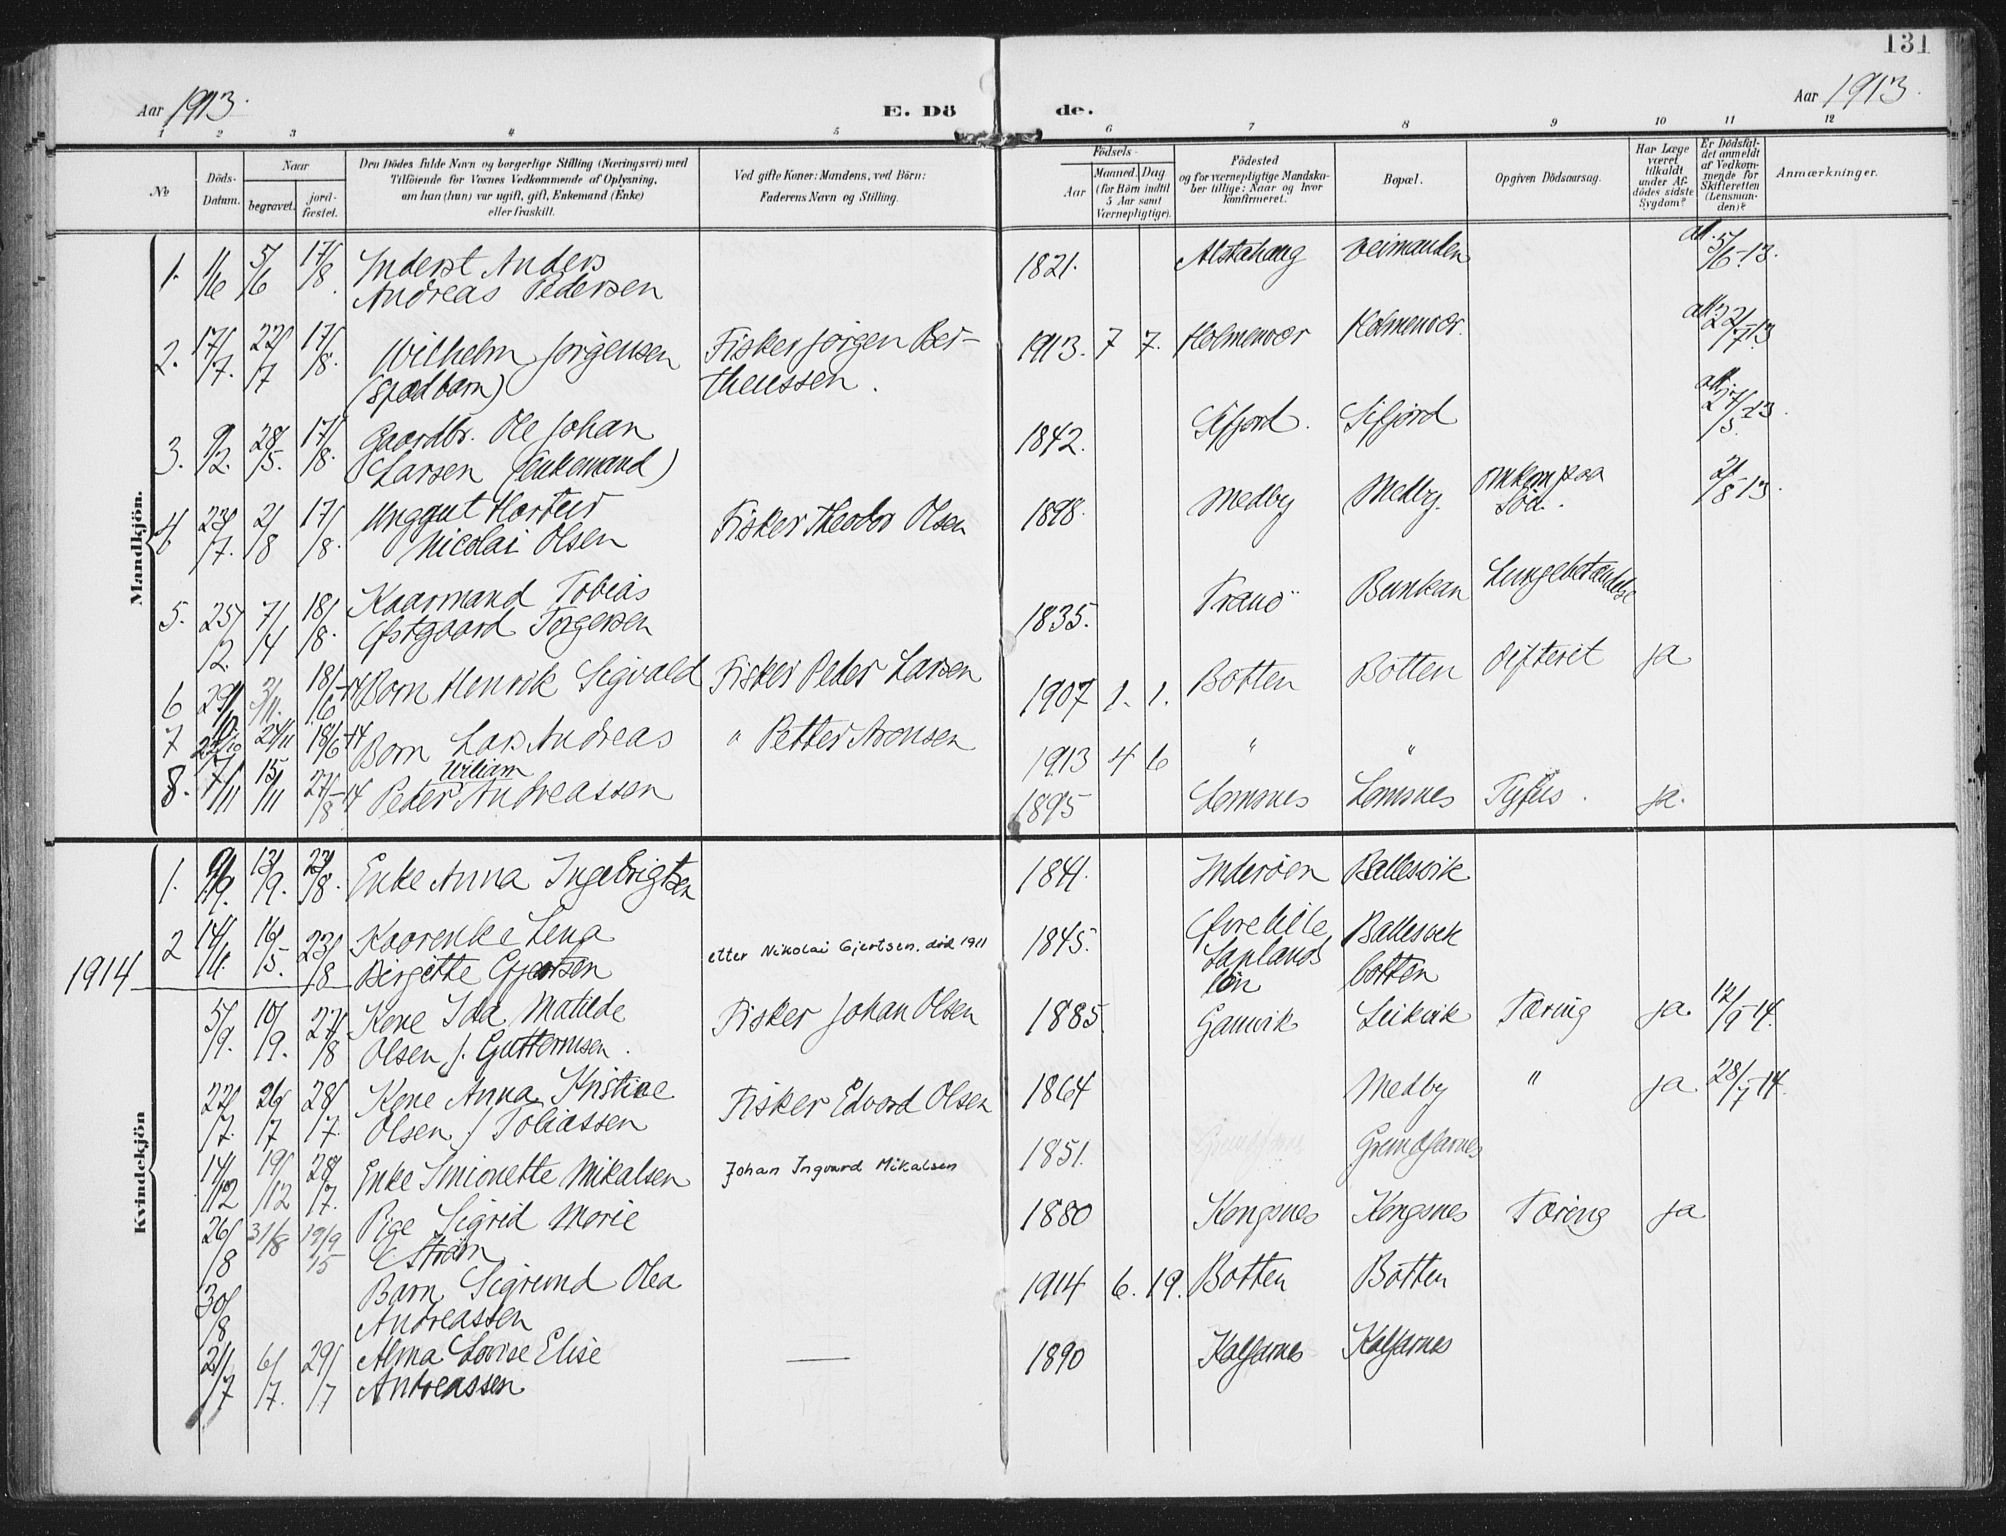 131
Aar 1913.
E. Dö de.
Aar 1913.
1 2 3 4 5 6 7 8 9 10 11 12
№
Döds-Datum.
Naar
begravet.
jord-fæstet.
Den Dödes fulde Navn og borgerlige Stilling (Næringsvei) med
Tilföiende for Voxnes Vedkommende af Oplysning,
om han (hun) var ugift, gift, Enkemand (Enke)
eller fraskilt.
Ved gifte Koner: Mandens, ved Börn:
Faderens Navn og Stilling.
Födsels-
Aar
Maaned. Dag
(for Börn indtil
5 Aar samt
Værnepligtige).
Födested
og for værnepligtige Mandska-
ber tillige: Naar og hvor
konfirmeret.
Bopæl.
Opgiven Dödsaarsag.
Har Læge
været
tilkaldt
under Af-
dödes sidste
Sygdom?
Er Dödsfal-
det anmeldt
af Vedkom-
mende for
Skifteretten
(Lensman-
den)?
Anmærkninger.
Mandkjön.
1. 1/6 5/6 17/8. Inderst Anders 1821. Alstahaug att. 5/6-13.
Andreas Pedersen
2. 17/7. 22/7 17/8. Wilhelm Jørgensen Fisker Jørgen Ber- 1913. 7 7. Holmenvær Holmenvær. att. 22/7-13
(spædbarn) theussen.
3. 9/2. 28/5. 17/8. Gaardbr. Ole Johan 1842. Sifjord. Sifjord att. 27/5-13.
Larsen (Enkemand)
4 23/7. 2/8 17/8. Unggut Hortur Fisker Theodor Olsen 1898. Medby Medby. omkom paa 2/8-13.
Nicolai Olsen Sjøen.
5. 25/2. 7/4 18/8. Kaarmand Tobias 1835. Tranö Bunkan Lungebetændelse
Østgaard Torgersen
6 29/10 3/11. 18/6-14 Barn Henrik Sigvald Fisker Peder Larsen 1907 1. 1. Botten Botten Difterit ja
7 24/11 18/6-14 Barn Lars Andreas " Petter Aronsen 1913 4 6 " "
William
8. 7/11 15/11 27/8-14 Peder Andreassen 1895 Lemsnes Lemsnes Tyfus. ja.
Kvindekjön
1. 9/9. 13/9. 23/8. Enke Anna Ingebrigtsen 1841. Inderøen Ballesvik
2 14/4. 16/5. 23/8 Kaarenke Lena etter Nikolai Gjertsen. død 1911 1845. Øvre lille Ballesvik
Birgitte Gjertsen Laplands botten
len
1914
5/9. 10/9. 27/8 Kone Ida Matilde Fisker Johan Olsen 1885 Ganvik Leikvik Tæring ja. 12/9-14.
Olsen f. Guttormsen.
22/7. 26/7 28/7. Kone Anna Kristine Fisker Edvard Olsen 1864 Medby " ja 28/7-14.
Olsen f Tobiassen
14/12 19/12 28/7. Enke Simonette Mikalsen Johan Ingvard Mikalsen 1851. Grundfarnes
26/8 31/8 19/9 15 Pige Sigrid Marie 1880 Kongsnes Kongsnes Tæring ja
Strøm
30/8 Barn Sigrund Olea 1914 6. 19. Botten Botten
Andreassen
21/7 6/7. 29/7 Alma Lovise Elise — 1890 Kalfarnes Kalfarnes
Andreassen